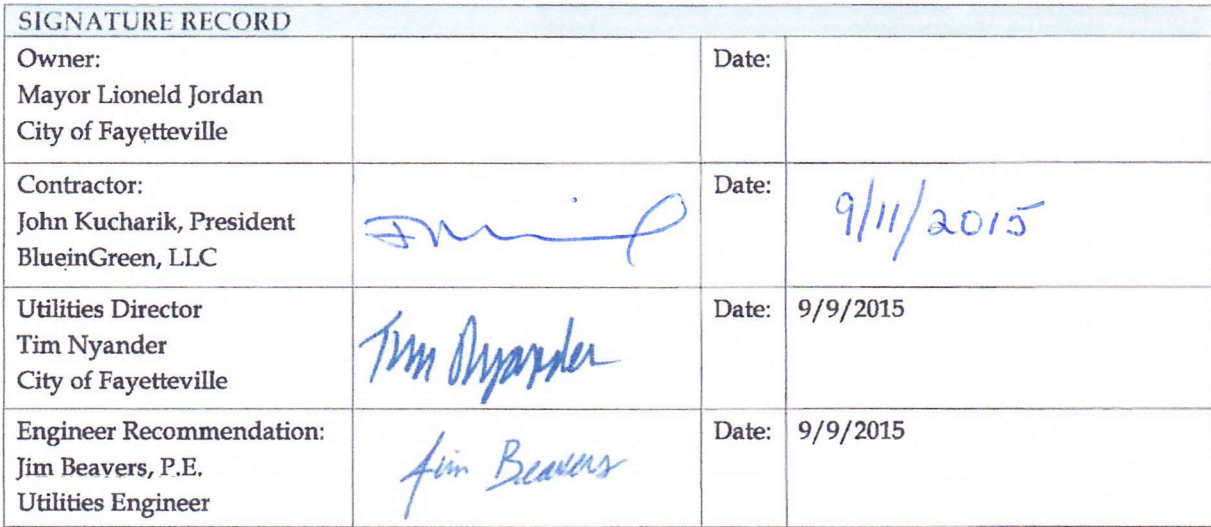 SIGNATURE RECORD
Owner:
Mayor Lioneld Jordan
City of Fayetteville
Date:
Contractor:
John Kucharik, President
BlueinGreen, LLC
Date:
9/11/2015
Utilities Director
Tim Nyander
City of Fayetteville
Tim Nyander
Date:
9/9/2015
Engineer Recommendation:
Jim Beavers, P.E.
Utilities Engineer
Jim Beavers
Date:
9/9/2015